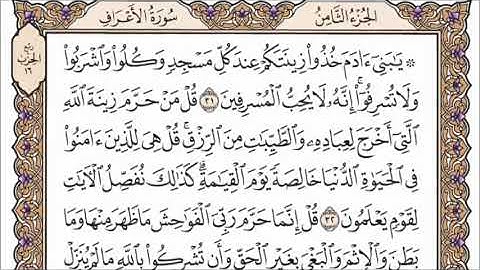 الجُزْءُ الثَّامِنُ
سُورَةُ الأَعْرَافِ
رُبْع
الحِزْب
١٦
۞ يَٰبَنِىٓ ءَادَمَ خُذُوا۟ زِينَتَكُمْ عِندَ كُلِّ مَسْجِدٍ وَكُلُوا۟ وَٱشْرَبُوا۟
وَلَا تُسْرِفُوٓا۟ ۚ إِنَّهُۥ لَا يُحِبُّ ٱلْمُسْرِفِينَ ٣١ قُلْ مَنْ حَرَّمَ زِينَةَ ٱللَّهِ
ٱلَّتِىٓ أَخْرَجَ لِعِبَادِهِۦ وَٱلطَّيِّبَٰتِ مِنَ ٱلرِّزْقِ ۚ قُلْ هِىَ لِلَّذِينَ ءَامَنُوا۟
فِى ٱلْحَيَوٰةِ ٱلدُّنْيَا خَالِصَةً يَوْمَ ٱلْقِيَٰمَةِ ۗ كَذَٰلِكَ نُفَصِّلُ ٱلْءَايَٰتِ
لِقَوْمٍ يَعْلَمُونَ ٣٢ قُلْ إِنَّمَا حَرَّمَ رَبِّىَ ٱلْفَوَٰحِشَ مَا ظَهَرَ مِنْهَا وَمَا
بَطَنَ وَٱلْإِثْمَ وَٱلْبَغْىَ بِغَيْرِ ٱلْحَقِّ وَأَن تُشْرِكُوا۟ بِٱللَّهِ مَا لَمْ يُنَزِّلْ